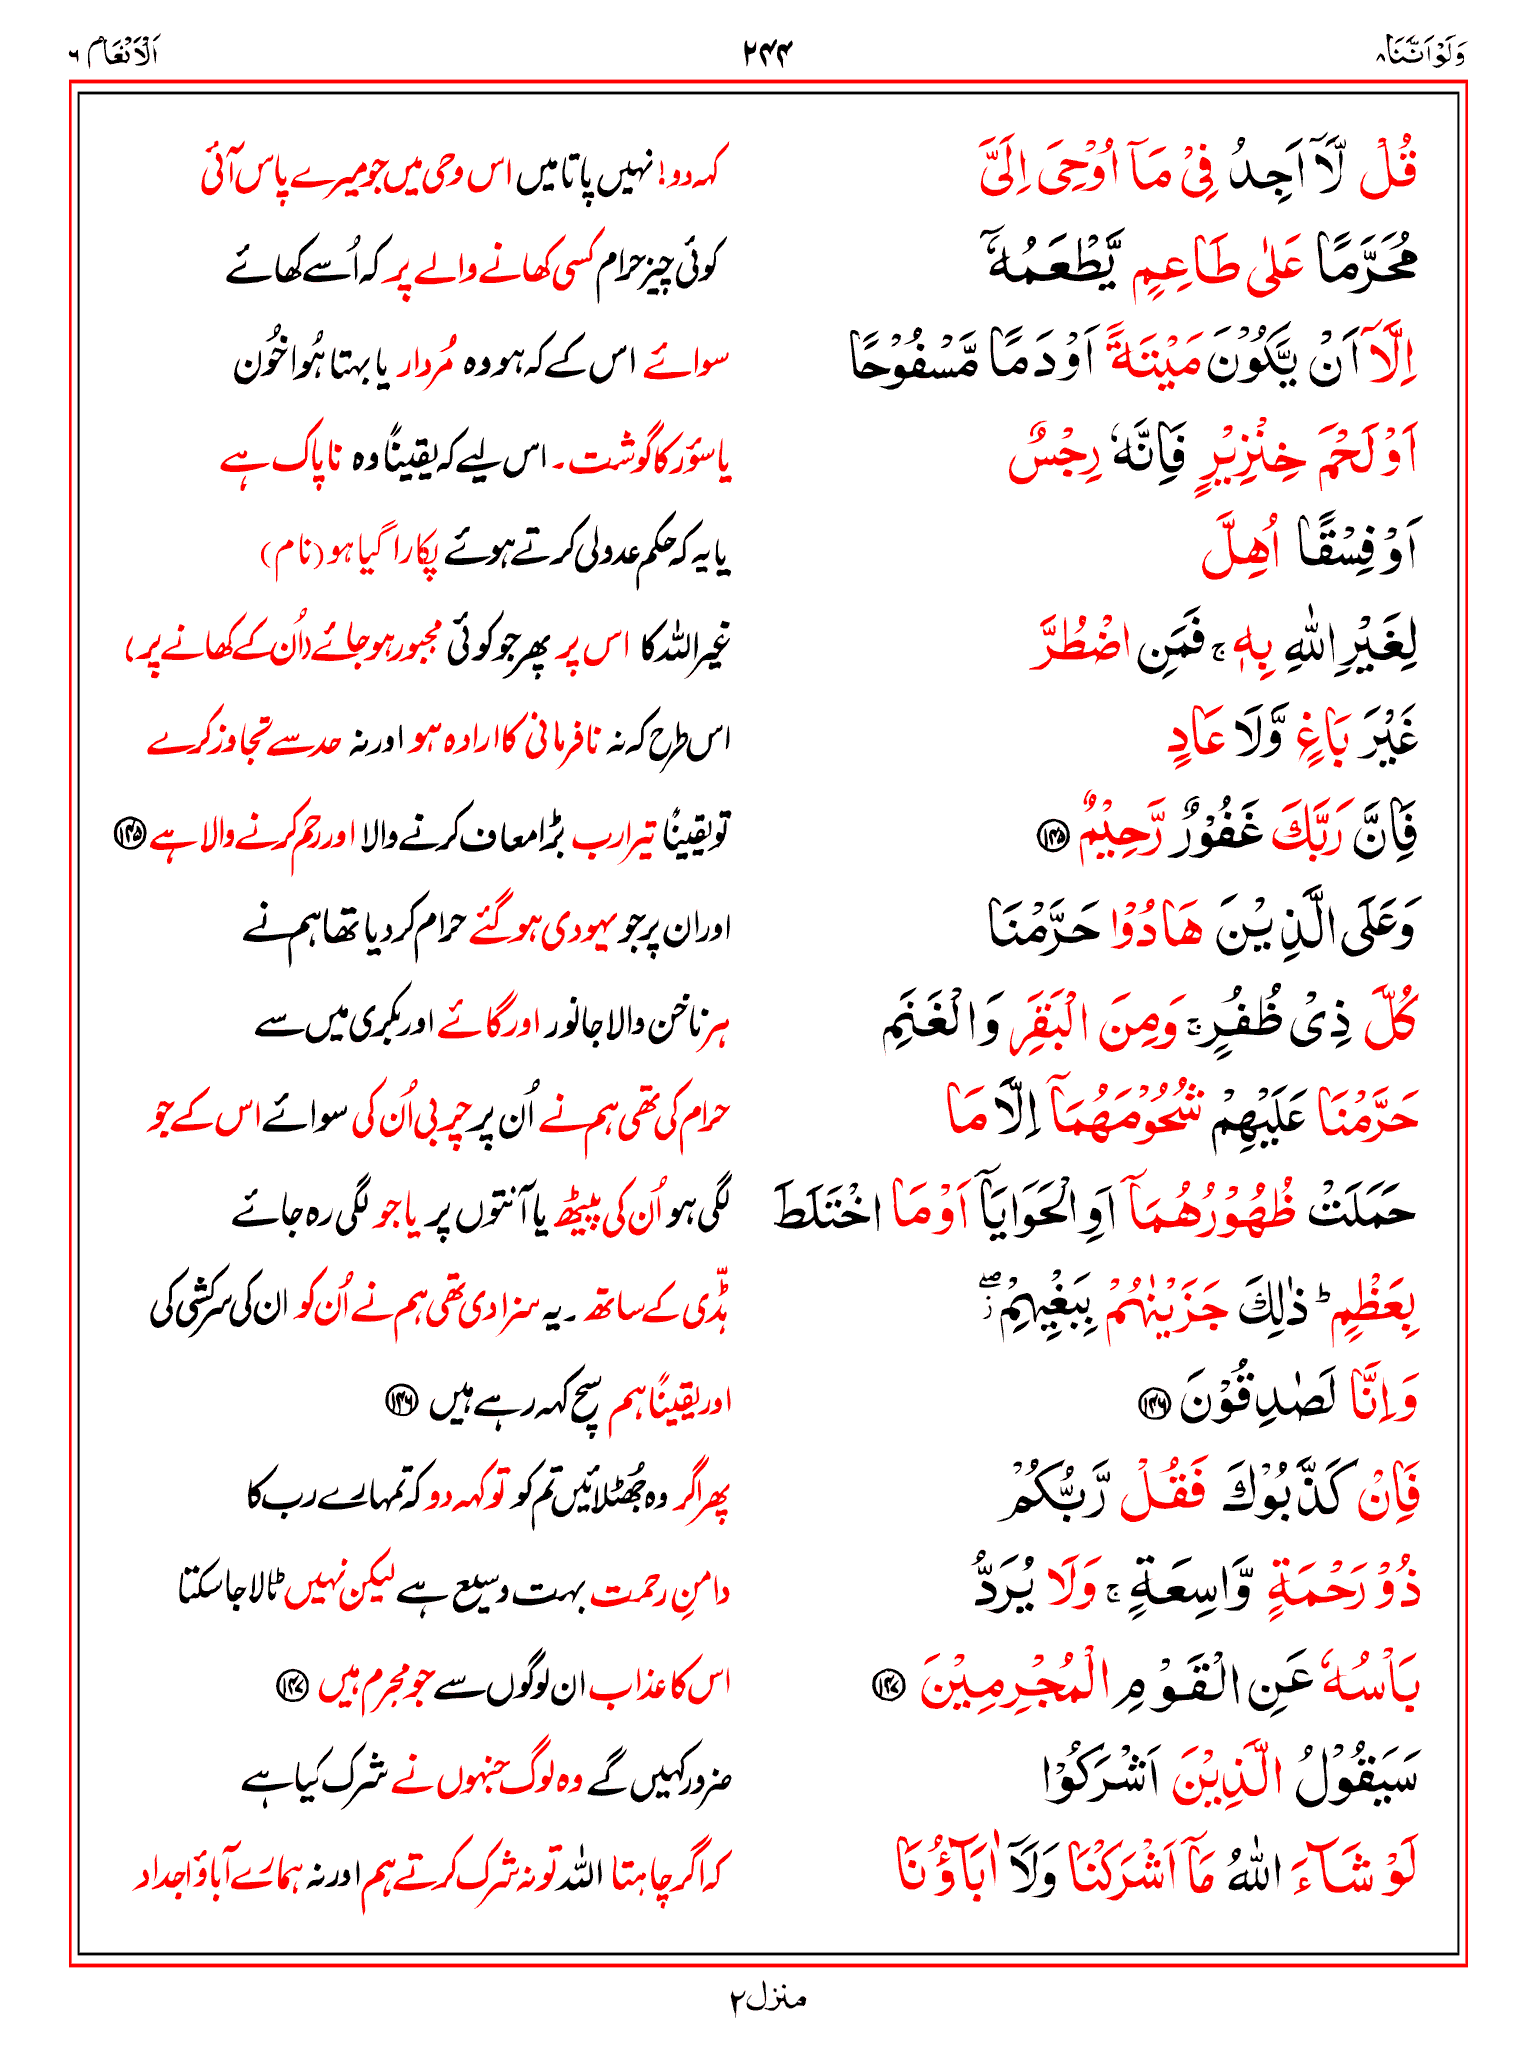 وَلَوْاَنَّنَا ۸ ۲۴۴ اَلْاَنْعَام ۶
قُلْ لَّاۤ اَجِدُ فِیْ مَاۤ اُوْحِیَ اِلَیَّ کہہ دو! نہیں پاتا میں اس وحی میں جو میرے پاس آئی
مُحَرَّمًا عَلٰی طَاعِمٍ یَّطْعَمُهٗۤ کوئی چیز حرام کسی کھانے والے پر کہ اُسے کھائے
اِلَّاۤ اَنْ یَّكُوْنَ مَیْتَةً اَوْ دَمًا مَّسْفُوْحًا سوائے اس کے کہ ہو وہ مُردار یا بہتا ہُوا خُون
اَوْ لَحْمَ خِنْزِیْرٍ فَاِنَّهٗ رِجْسٌ یا سؤر کا گوشت۔ اس لیے کہ یقیناً وہ ناپاک ہے
اَوْ فِسْقًا اُهِلَّ یا یہ کہ حکم عدولی کرتے ہوئے پکارا گیا ہو (نام)
لِغَیْرِ اللّٰهِ بِهٖ ۚ فَمَنِ اضْطُرَّ غیر اللہ کا اس پر پھر جو کوئی مجبور ہو جائے (اُن کے کھانے پر)
غَیْرَ بَاغٍ وَّلَا عَادٍ اس طرح کہ نہ نافرمانی کا ارادہ ہو اور نہ حد سے تجاوز کرے
فَاِنَّ رَبَّكَ غَفُوْرٌ رَّحِیْمٌ ۝۱۴۵ تو یقیناً تیرا رب بڑا معاف کرنے والا اور رحم کرنے والا ہے ۝۱۴۵
وَعَلَی الَّذِیْنَ هَادُوْا حَرَّمْنَا اور ان پر جو یہودی ہو گئے حرام کر دیا تھا ہم نے
كُلَّ ذِیْ ظُفُرٍ ۚ وَمِنَ الْبَقَرِ وَالْغَنَمِ ہر ناخن والا جانور اور گائے اور بکری میں سے
حَرَّمْنَا عَلَیْهِمْ شُحُوْمَهُمَاۤ اِلَّا مَا حرام کی تھی ہم نے اُن پر چربی اُن کی سوائے اس کے جو
حَمَلَتْ ظُهُوْرُهُمَاۤ اَوِ الْحَوَایَاۤ اَوْ مَا اخْتَلَطَ لگی ہو اُن کی پیٹھ یا آنتوں پر یا جو لگی رہ جائے
بِعَظْمٍ ؕ ذٰلِكَ جَزَیْنٰهُمْ بِبَغْیِهِمْ ۖؗ ہڈّی کے ساتھ۔ یہ سزا دی تھی ہم نے اُن کو ان کی سرکشی کی
وَاِنَّا لَصٰدِقُوْنَ ۝۱۴۶ اور یقیناً ہم سچ کہہ رہے ہیں ۝۱۴۶
فَاِنْ كَذَّبُوْكَ فَقُلْ رَّبُّكُمْ پھر اگر وہ جُھٹلائیں تم کو تو کہہ دو کہ تمہارے رب کا
ذُوْ رَحْمَةٍ وَّاسِعَةٍ ۚ وَلَا یُرَدُّ دامنِ رحمت بہت وسیع ہے لیکن نہیں ٹالا جا سکتا
بَاْسُهٗ عَنِ الْقَوْمِ الْمُجْرِمِیْنَ ۝۱۴۷ اس کا عذاب ان لوگوں سے جو مجرم ہیں ۝۱۴۷
سَیَقُوْلُ الَّذِیْنَ اَشْرَكُوْا ضرور کہیں گے وہ لوگ جنہوں نے شرک کیا ہے
لَوْ شَآءَ اللّٰهُ مَاۤ اَشْرَكْنَا وَلَاۤ اٰبَآؤُنَا کہ اگر چاہتا اللہ تو نہ شرک کرتے ہم اور نہ ہمارے آباؤ اجداد
منزل ۲